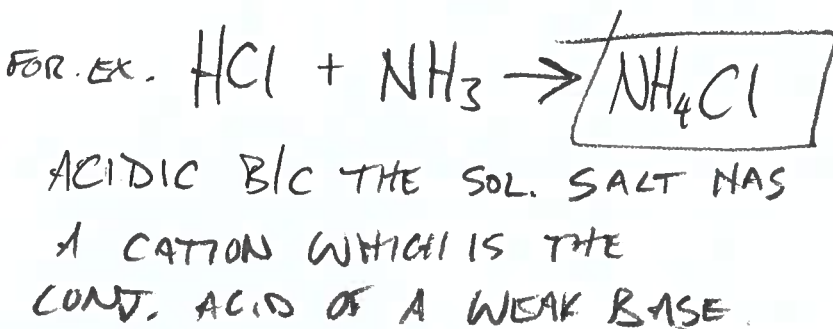 FOR. EX. HCl + NH₃ → NH₄Cl
ACIDIC B/C THE SOL. SALT HAS
A CATION WHICH IS THE
CONJ. ACID OF A WEAK BASE.